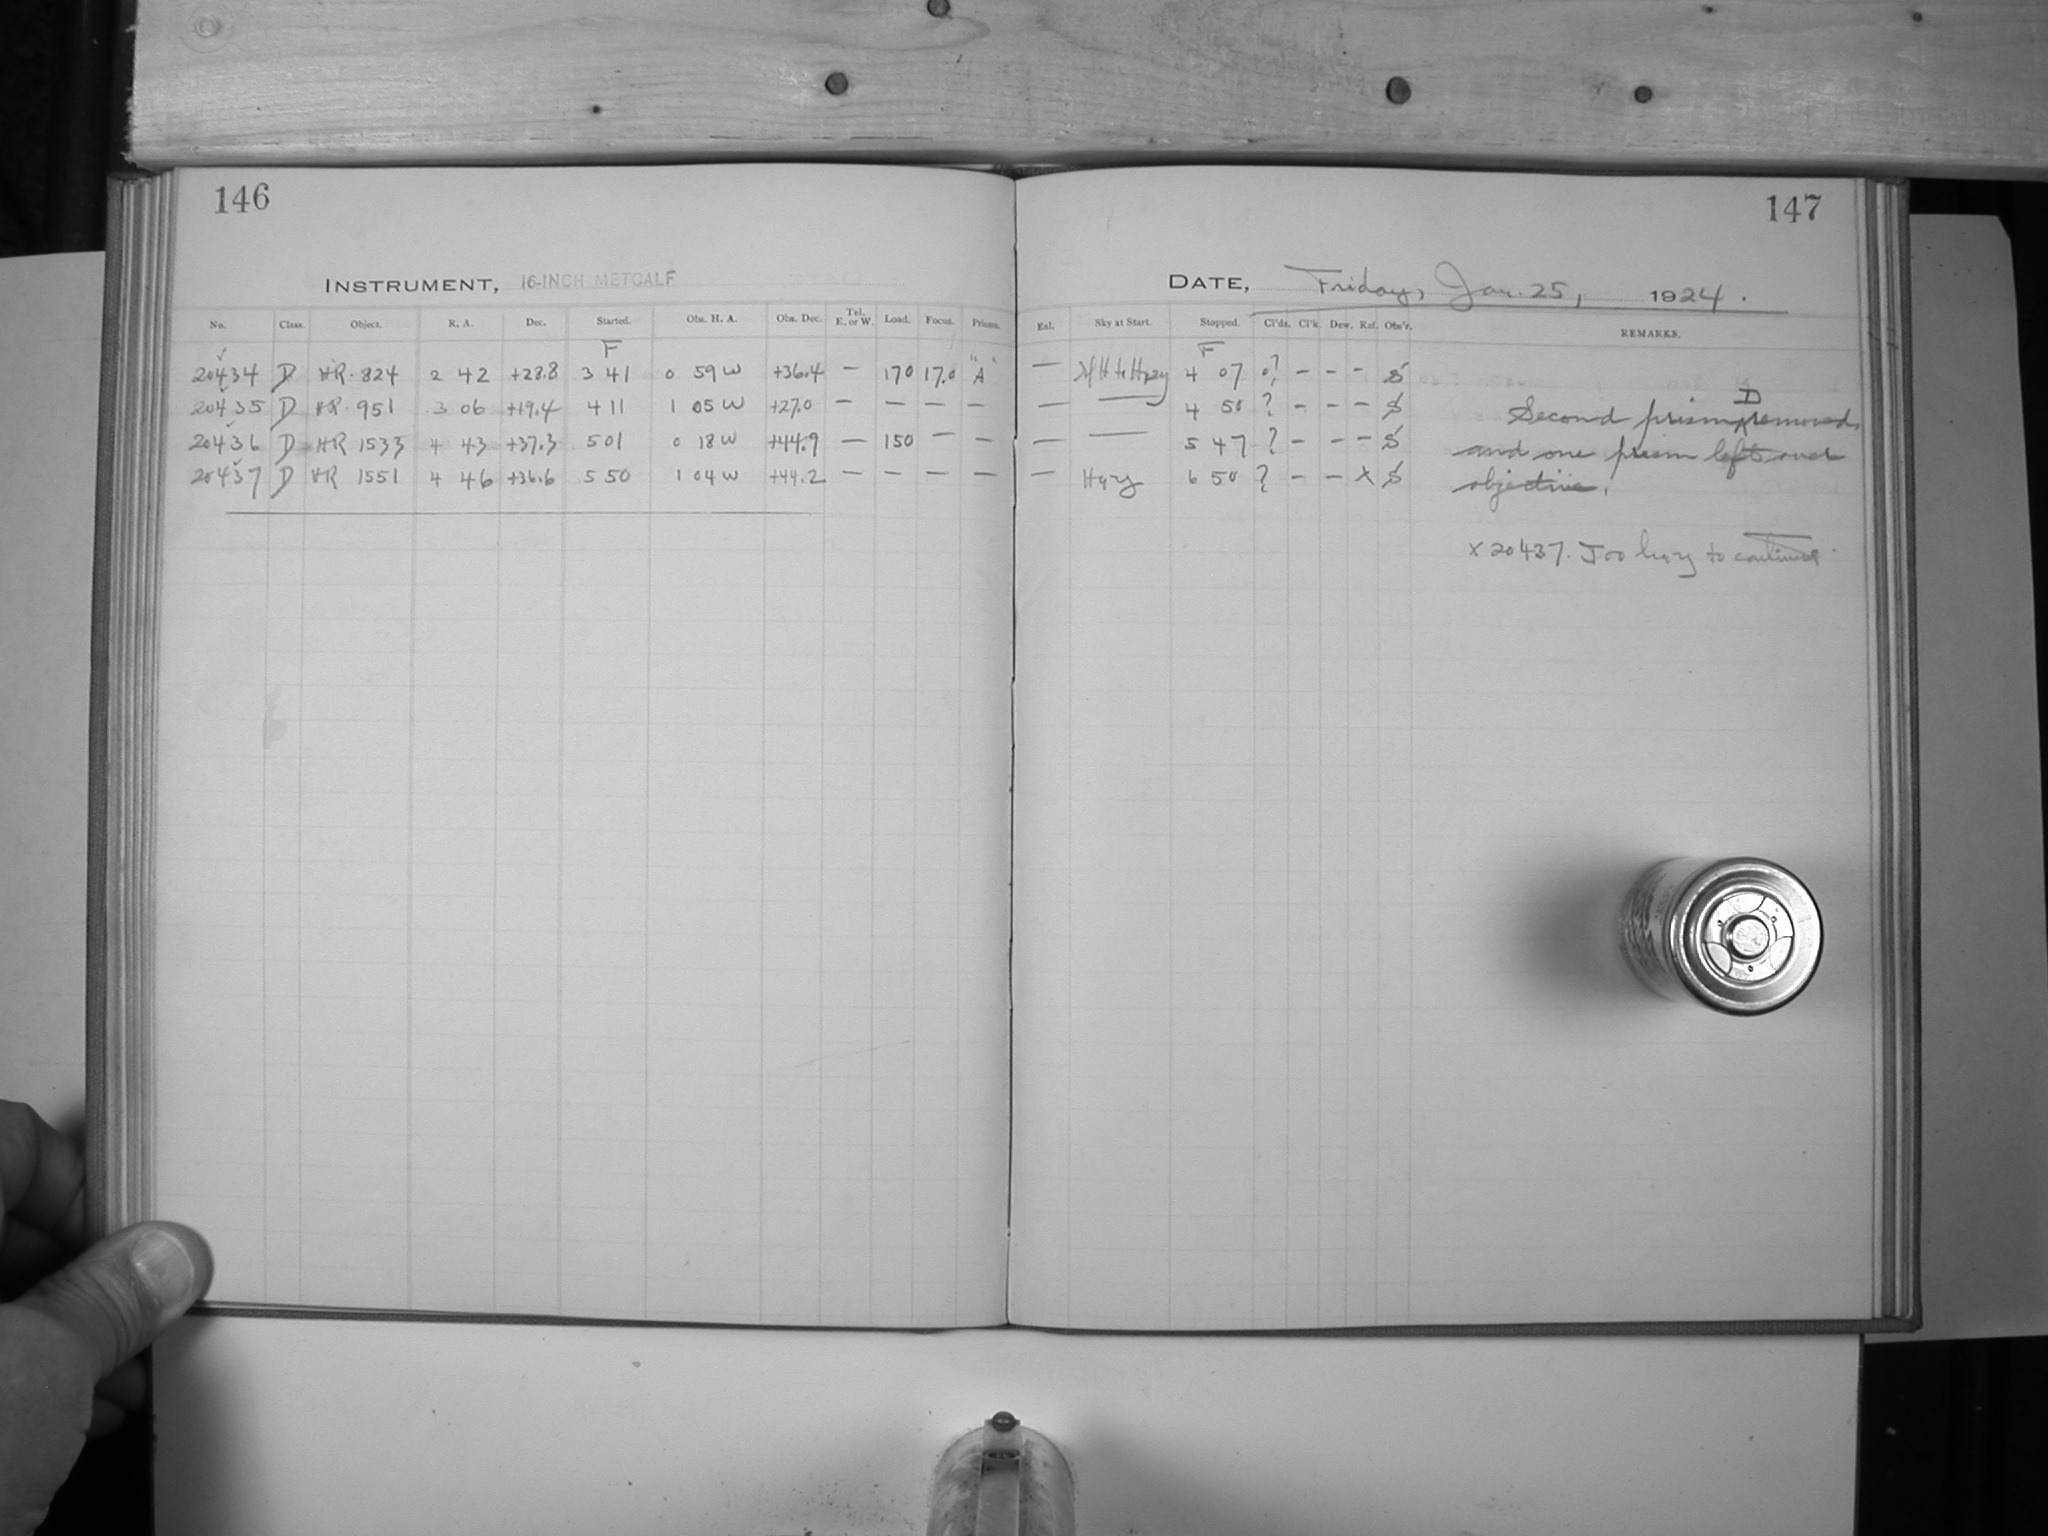 146
INSTRUMENT, 16-INCH METCALF
No. Class. Object. R. A. Dec. Started. Obs. H. A. Obs. Dec. Tel. E. or W. Load. Focus. Prisms.
F
20434 D HR. 824 2 42 +28.8 3 41 0 59 W +36.4 — 170 17.0 "A"
20435 D HR. 951 3 06 +19.4 4 11 1 05 W +27.0 — — — —
20436 D HR 1533 4 43 +37.3 5 01 0 18 W +44.9 — 150 — —
20437 D HR 1551 4 46 +36.6 5 50 1 04 W +44.2 — — — —
147
DATE, Friday, Jan. 25, 1924.
Exl. Sky at Start. Stopped. Cl'ds. Cl'k. Dew. Ref. Obs'r. REMARKS.
F
— to Hazy 4 07 ? – – – S
— — 4 50 ? – – – S
— — 5 47 ? – – – S
— Hazy 6 50 ? – – X S
Second prism D removed,
and one prism left over
objective.
X 20437. Too hazy to continue.